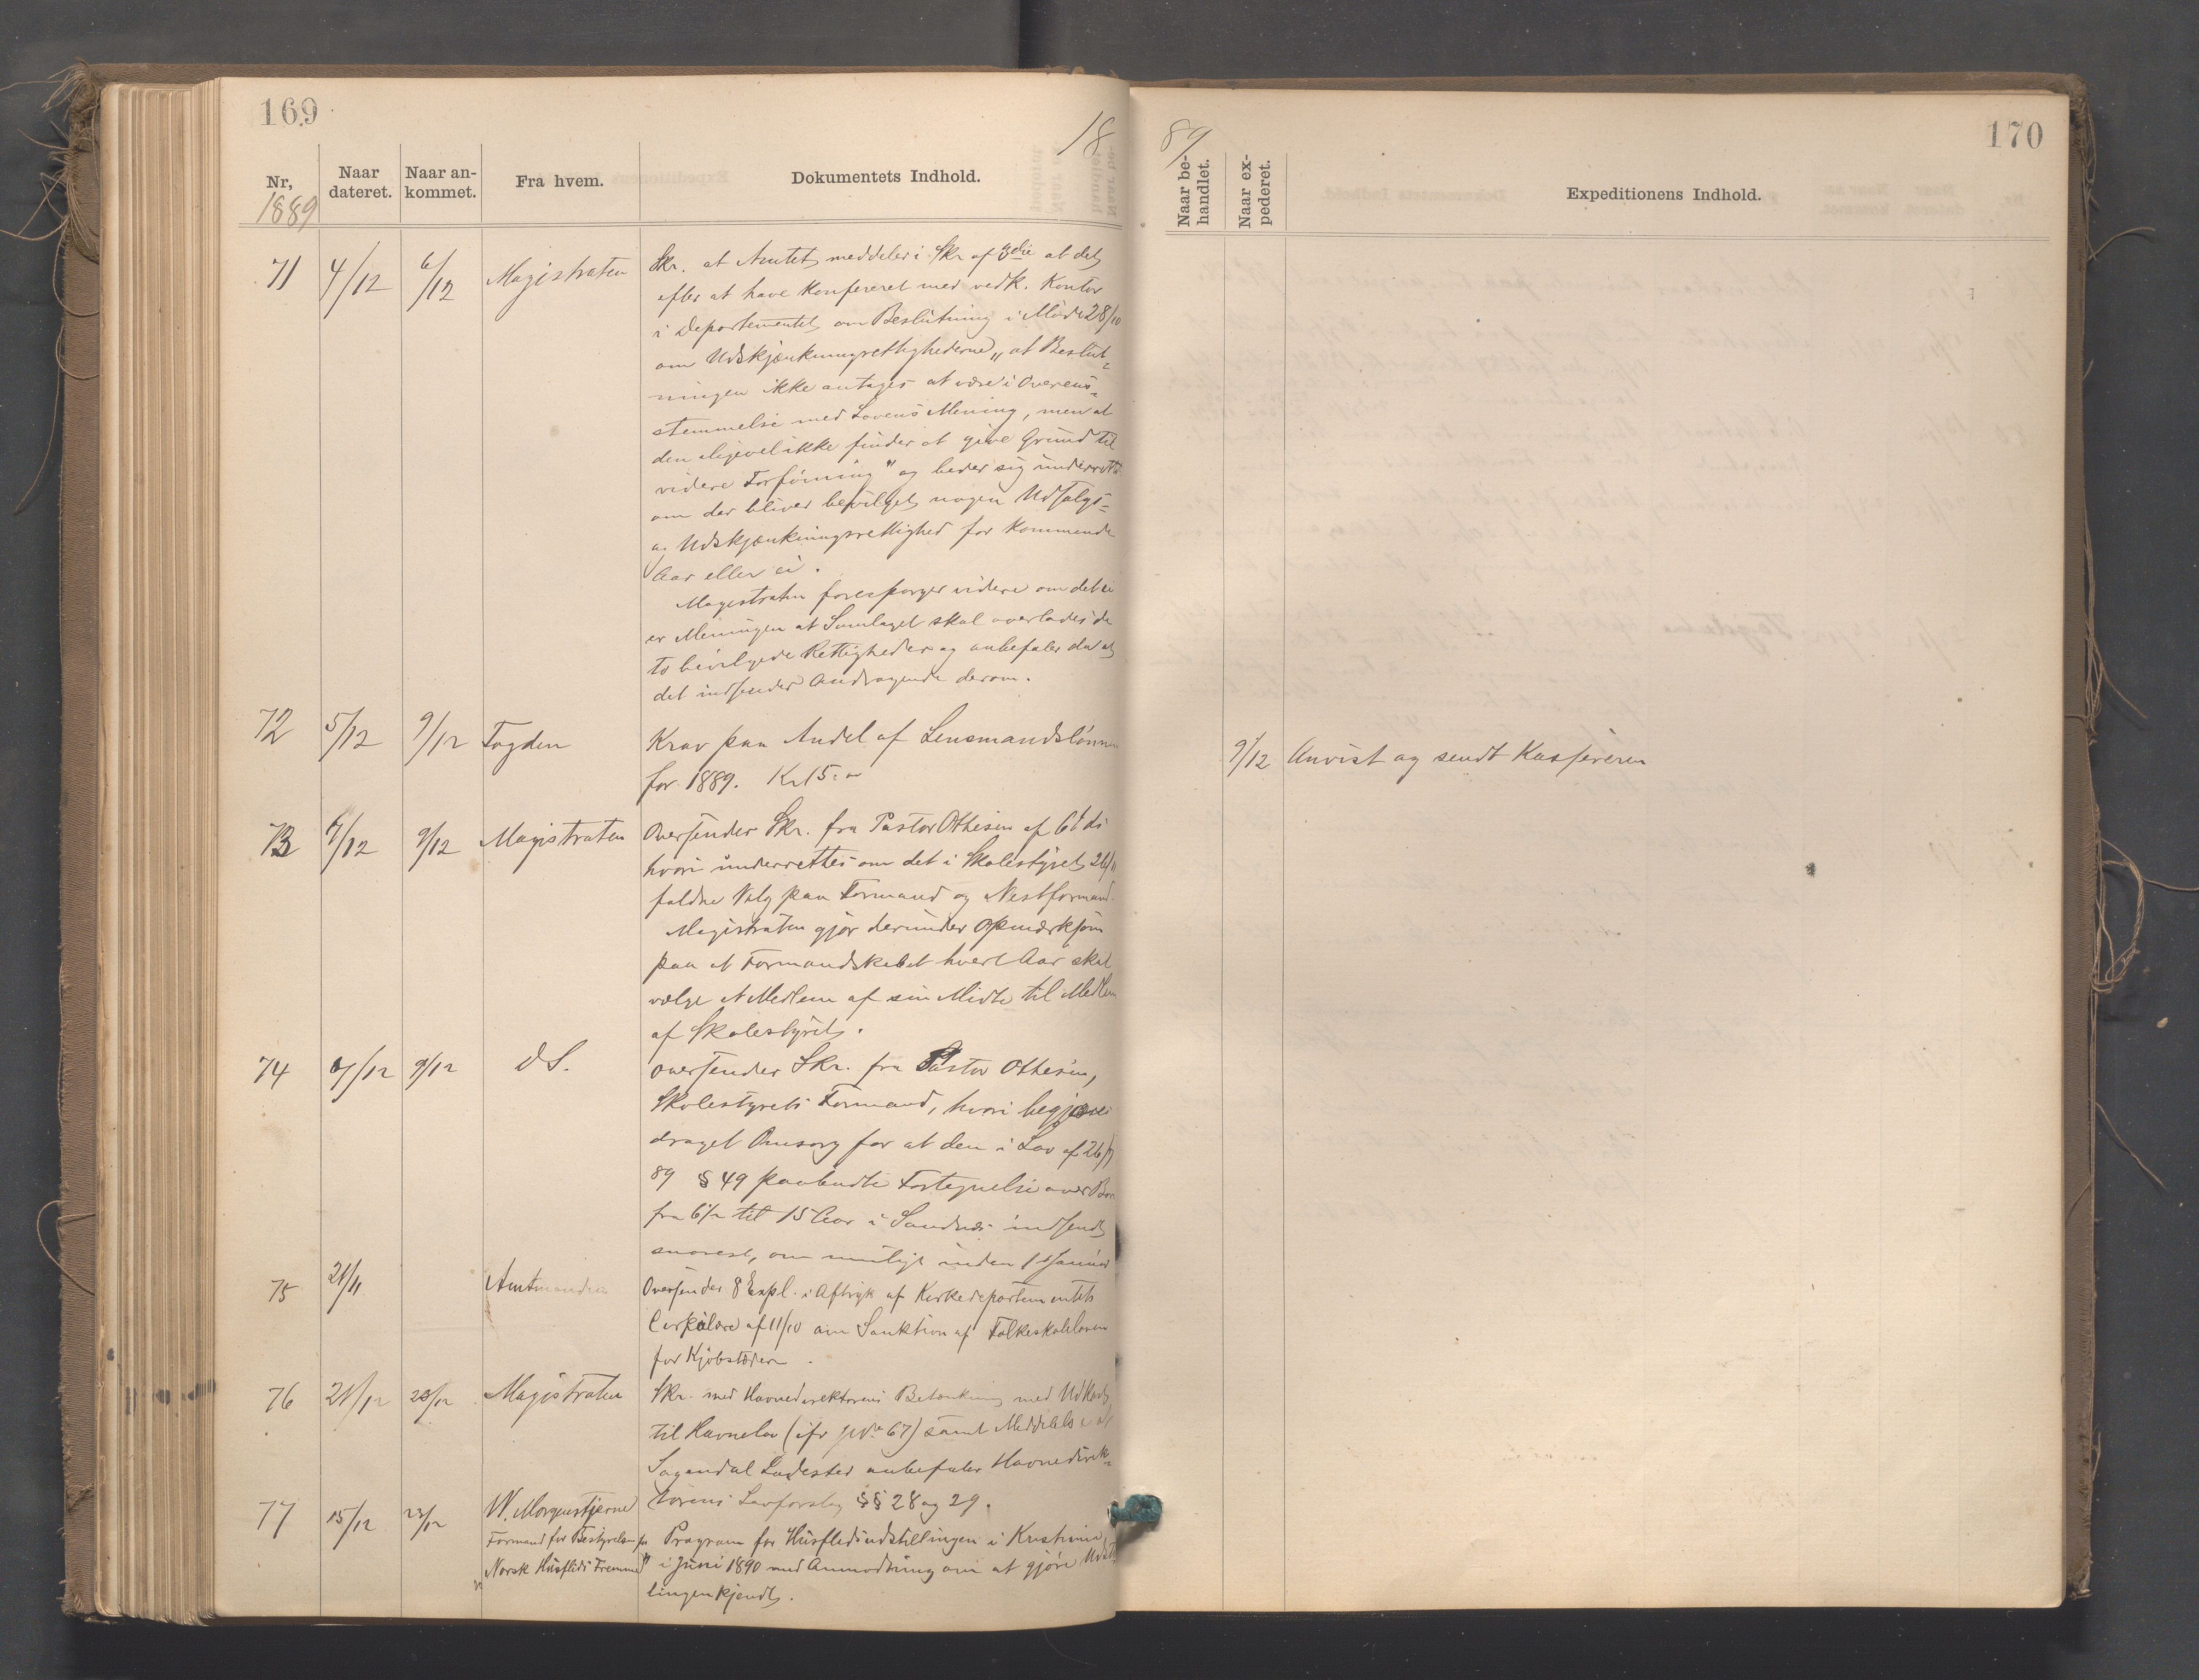 169
18
Nr,
1889
Naar dateret.
Naar ankommet.
Fra hvem.
Dokumentets Indhold.
71 4/12 6/12 Magistraten Skr. at Amtet meddeler i Skr af 3die at det
efter at have konfereret med vedk. Kontor
i Departementet om Beslutning i Møde 28/10
om Udskjænkningsrettighederne „at Beslut-
ningen ikke antages at være i Overens-
stemmelse med Lovens Mening, men at
den aligevel ikke finder at give Grund til
videre Forføining" og beder sig underrettet
om der bliver bevilget nogen Udsalgs-
og Udskjænkningsrettighed for kommende
Aar eller ei.
Magistraten forespørger videre om det ei
er Meningen at Samlaget skal overlades de
to bevilgede Rettigheder og anbefaler da at
det indsender Andragende derom.
72 5/12 9/12 Fogden Krav paa Andel af Lensmandslønnen
for 1889. Kr 15
73 6/12 9/12 Magistraten Oversender Skr. fra Pastor Othesen af 6t ds
hvori underrettes om det i Skolestyret 26/11
faldne Valg paa Formand og Nestformand.
Magistraten gjør derunder opmærksom
paa at Formandskabet hvert Aar skal
vælge et Medlem af sin Midte til Medlem
af Skolestyret.
74 7/12 9/12 d S. oversender Skr. fra Pastor Othesen,
Skolestyrets Formand, hvori begjæres
draget Omsorg for at den i Lov af 26/
89 § 49 paabudte Fortegnelse over Børn
fra 6½ til 15 Aar i Sandnes indsendt
snarest, om muligt inden 1st Januar
75 21/11 Amtmanden Oversender 8 Expl. i Aftryk af Kirkedepartementets
Cirkulære af 11/10 om Sanktion af Folkeskoleloven
for Kjøbstæderne.
76 21/12 23/12 Magistraten Skr. med Havnedirektørens Betænkning med Udkast
til Havnelov (ifr No 67) samt Meddelelse at
Sogndal Ladested anbefaler Havnedirek-
tørens Lovforslag §§ 28 og 29.
77 15/12 23/12 W. Morgenstjerne
Formand for Bestyrelsen for
„Norsk Husflids Fremme" Program for Husflidsudstillingen i Kristiania
i Juni 1890 med Anmodning om at gjøre Udstil
lingen kjendt.
89
170
Naar behandlet.
Naar expederet.
Expeditionens Indhold.
9/12 Anvist og sendt Kassereren